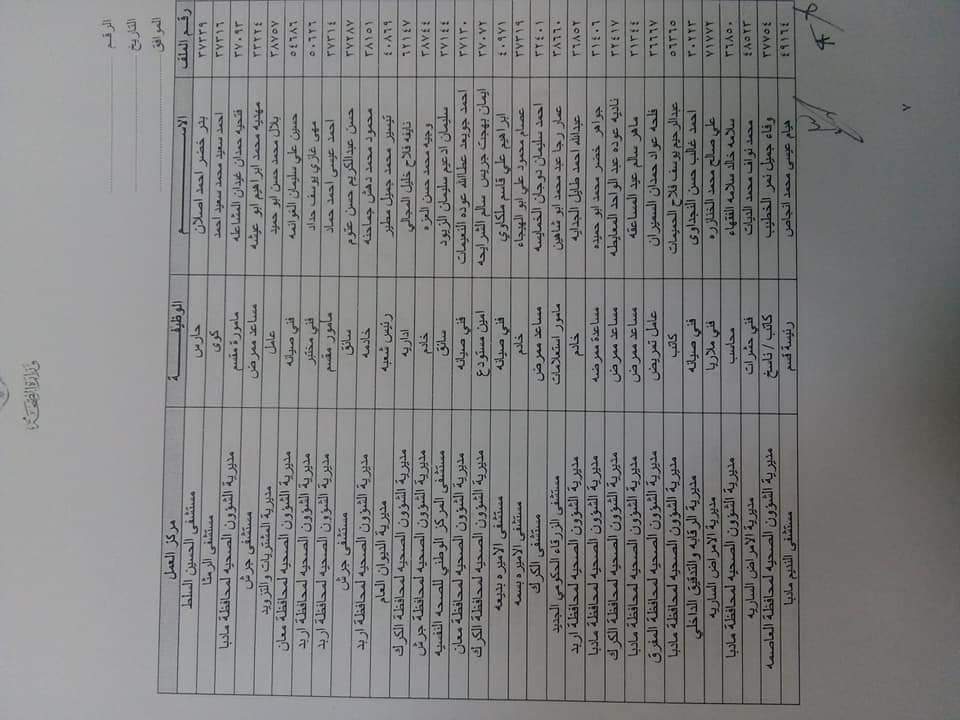 وزارة الصحة
الرقم
التاريخ
الموافق
رقم الملف الاســـم الوظيفـــة مركز العمل
٣٧٢٣٩ بدر خضر احمد اصلان حارس مستشفى الحسين السلط
٣٧٣١٦ احمد سعيد محمد سعيد احمد كوى مستشفى الرمثا
٣٧٠٩٣ فتحيه حمدان مامورة مقسم مديرية الشؤون الصحيه لمحافظة مادبا
٢٣٢٢٤ مهديه محمد ابراهيم ابو عيشه مساعد ممرض مستشفى جرش
٣٨٧٥٧ بلال محمد حسن ابو حميد عامل مديرية المشتريات والتزويد
٥٤٦٨٦ حسين علي سليمان الغوانمه فني صيانه مديرية الشؤون الصحيه لمحافظة معان
٥٠٦٢٦ مهى غازي يوسف حداد فني مختبر مديرية الشؤون الصحيه لمحافظة اربد
٣٧٣١٤ احمد عيسى احمد حماد مامور مقسم مديرية الشؤون الصحيه لمحافظة اربد
٣٧٢٨٧ حسن عبدالكريم حسن عتوم سائق مستشفى جرش
٣٨١٥١ محمود محمد خادمه مديرية الشؤون الصحيه لمحافظة اربد
٤٠٨٦٩ تيسير محمد جميل مطير رئيس شعبه مديرية الديوان العام
٦٢١٤٧ نايفه فلاح خليل المجالي اداريه مديرية الشؤون الصحيه لمحافظة الكرك
٣٨٧٤٤ وجيه محمد حسن العزه خادم مديرية الشؤون الصحيه لمحافظة جرش
٣٧١٤٤ سليمان ادعيم سليمان الزيود سائق مستشفى المركز الوطني للصحه النفسيه
٣٧١٣٠ احمد جويعد عطاالله عوده النعيمات فني صيانه مديرية الشؤون الصحيه لمحافظة معان
٣٧٠٧٢ ايمان بهجت جريس سالم الشرايحه امين مستودع مديرية الشؤون الصحيه لمحافظة الكرك
٤٠٩٧١ ابراهيم علي قاسم ملكاوي فني صيانه مستشفى الاميره بديعه
٣٧٣١٩ عصام محمود علي ابو الهيجاء خادم مستشفى الاميره بسمه
٣٢٤٠١ احمد سليمان دوجان الخمايسه مساعد ممرض مستشفى الكرك
٣٨٦٦٠ عمار رجا عبد محمد ابو شاهين مامور استعلامات مستشفى الزرقاء الحكومي الجديد
٣٦٨٥٢ عبدالله احمد الجدايه خادم مديرية الشؤون الصحيه لمحافظة اربد
٣١٤٠٦ جواهر خضر محمد ابو حميده مساعدة ممرضه مديرية الشؤون الصحيه لمحافظة مادبا
٣٢٤١٧ ناديه عوده عبد الواحد المعايطه مساعد ممرض مديرية الشؤون الصحيه لمحافظة الكرك
٣١٢٤٤ ماهر سالم عبد المساعفه مساعد ممرض مديرية الشؤون الصحيه لمحافظة مادبا
٣٦٦٦٧ فلحه عواد حمدان السميران عامل تمريض مديرية الشؤون الصحيه لمحافظة المفرق
٥٦٣٦٥ عبدالرحيم يوسف فلاح الحميمات كاتب مديرية الشؤون الصحيه لمحافظة مادبا
٣٠٢٢٣ احمد غالب حسن النجداوي فني صيانه مديرية الرقابه والتدقيق الداخلي
٧١٧٧٢ علي صالح محمد الخنازره فني ملاريا مديرية الامراض الساريه
٣٦٨٥٠ سلامه خالد سلامه الفقهاء محاسب مديرية الشؤون الصحيه لمحافظة مادبا
٤٨٥٢٣ محمد نواف محمد الديات فني حشرات مديرية الامراض الساريه
٣٧٧٥٤ وفاء جميل نمر الخطيب كاتب / ناسخ مديرية الشؤون الصحيه لمحافظة العاصمه
٤٩١٦٤ هيام عيسى محمد انجاص رئيسة قسم مستشفى النديم مادبا
٧